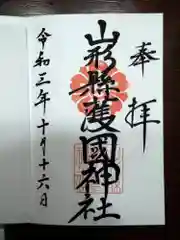 奉拝
山形縣護國神社
令和三年十月十六日